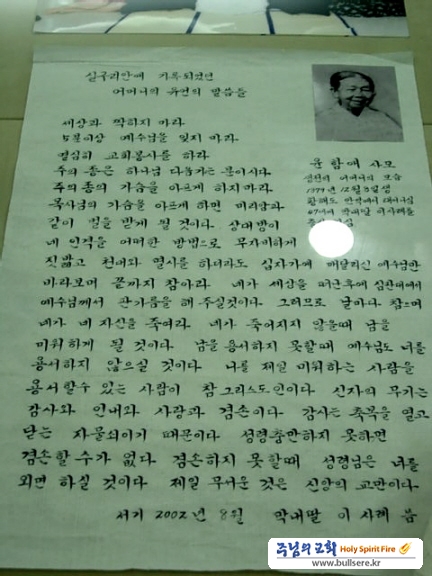 실구리안에 기록되었던
어머니의 유언의 말씀들
세상과 짝하지 마라
5분이상 예수님을 잊지 마라
열심히 교회봉사를 하라
주의 종은 하나님 다음가는 분이시다
주의 종의 가슴을 아프게 하지 마라
목사님의 가슴을 아프게 하면 미리암과
같이 벌을 받게 될 것이다 상대방이
네 인격을 어떠한 방법으로 무자비하게
짓밟고 천대와 멸시를 하더라도 십자가에 매달리신 예수님만
바라보며 끝까지 참아라 네가 세상을 떠난후에 심판대에서
예수님께서 판가름을 해 주실것이다 그러므로 날마다 참으며
네가 네 자신을 죽여라 네가 죽어지지 않을때 남을
미워하게 될 것이다 남을 용서하지 못할때 예수님도 너를
용서하지 않으실 것이다 너를 제일 미워하는 사람을
용서할수 있는 사람이 참 그리스도인이다 신자의 무기는
감사와 인내와 사랑과 겸손이다 감사는 축복을 열고
닫는 자물쇠이기 때문이다 성령충만하지 못하면
겸손할 수가 없다 겸손하지 못할때 성령님은 너를
외면 하실 것이다 제일 무서운 것은 신앙의 교만이다
서기 2002년 8월 막내딸 이사례 씀
윤함애 사모
생전의 어머니의 모습
12월 3일생
황해도 안악에서 태어나심
주님의교회 Holy Spirit Fire
www.bullsere.kr